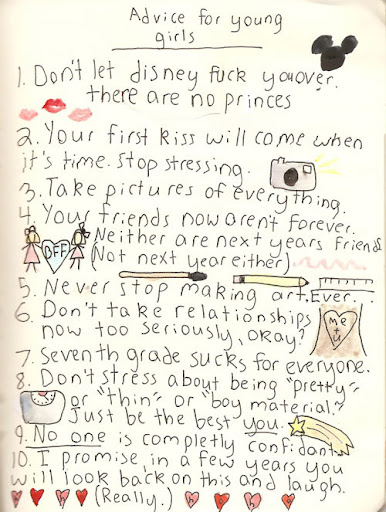 Advice for young
girls
1. Don't let disney fuck you over.
there are no princes
2. Your first kiss will come when
it's time. Stop stressing.
3. Take pictures of everything.
4. Your friends now aren't forever.
Neither are next years friends
BFF
(Not next year either)
5. Never stop making art. Ever.
6. Don't take relationships
now too seriously, okay?
me
+
u
7. Seventh grade sucks for everyone.
8. Don't stress about being "pretty"
or "thin" or "boy material."
Just be the best you.
9. No one is completly confidant
10. I promise, in a few years you
will look back on this and laugh.
(Really.)